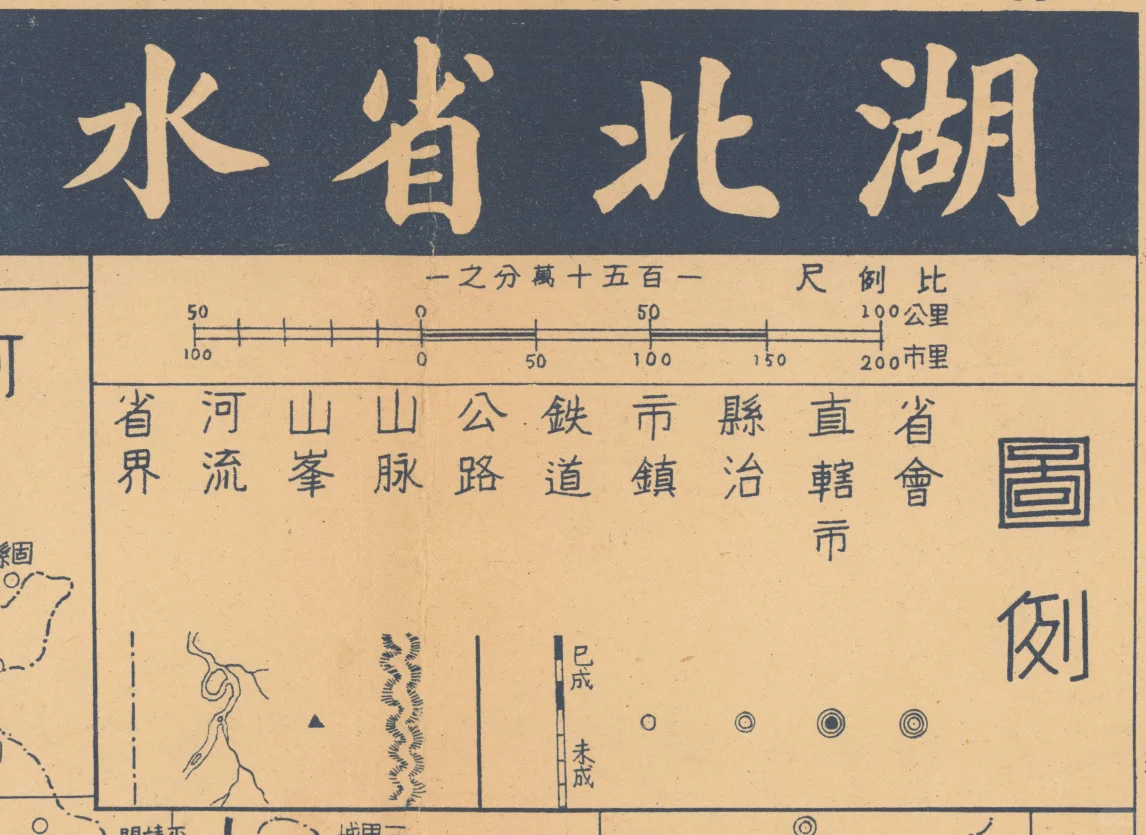 湖北省水
比例尺 一百五十萬分之一
50 0 50 100公里
100 0 50 100 150 200市里
圖例
省會
直轄市
縣治
市鎮
鉄道
已成
未成
公路
山脉
山峯
河流
省界
固縣